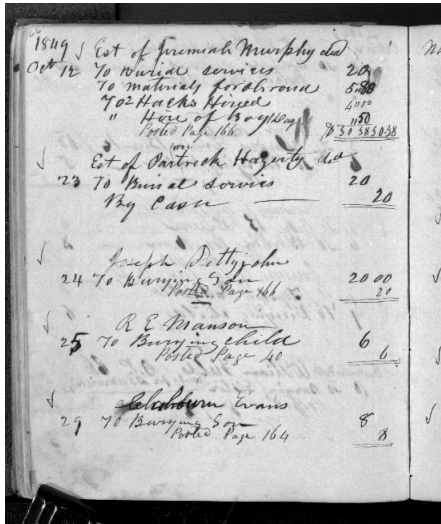 1849 Est of Jeremiah Murphy dcd
Oct 12 To Burial services 20
To materials for Shroud 5"88
To 2 Hacks Hired 4"00
" Hire of Boy 1 day "50
Posted Page 166 $30 38 30 38
Est of Partrick Hagerty dcd
23 To Burial services 20
By Cash 20
Joseph Pettyjohn
24 To Burying Son 20 00
Posted Page 166 20
R E Manson
25 To Burying child 6
Posted Page 40 6
Evans
29 To Burying Son 8
Posted Page 164 8